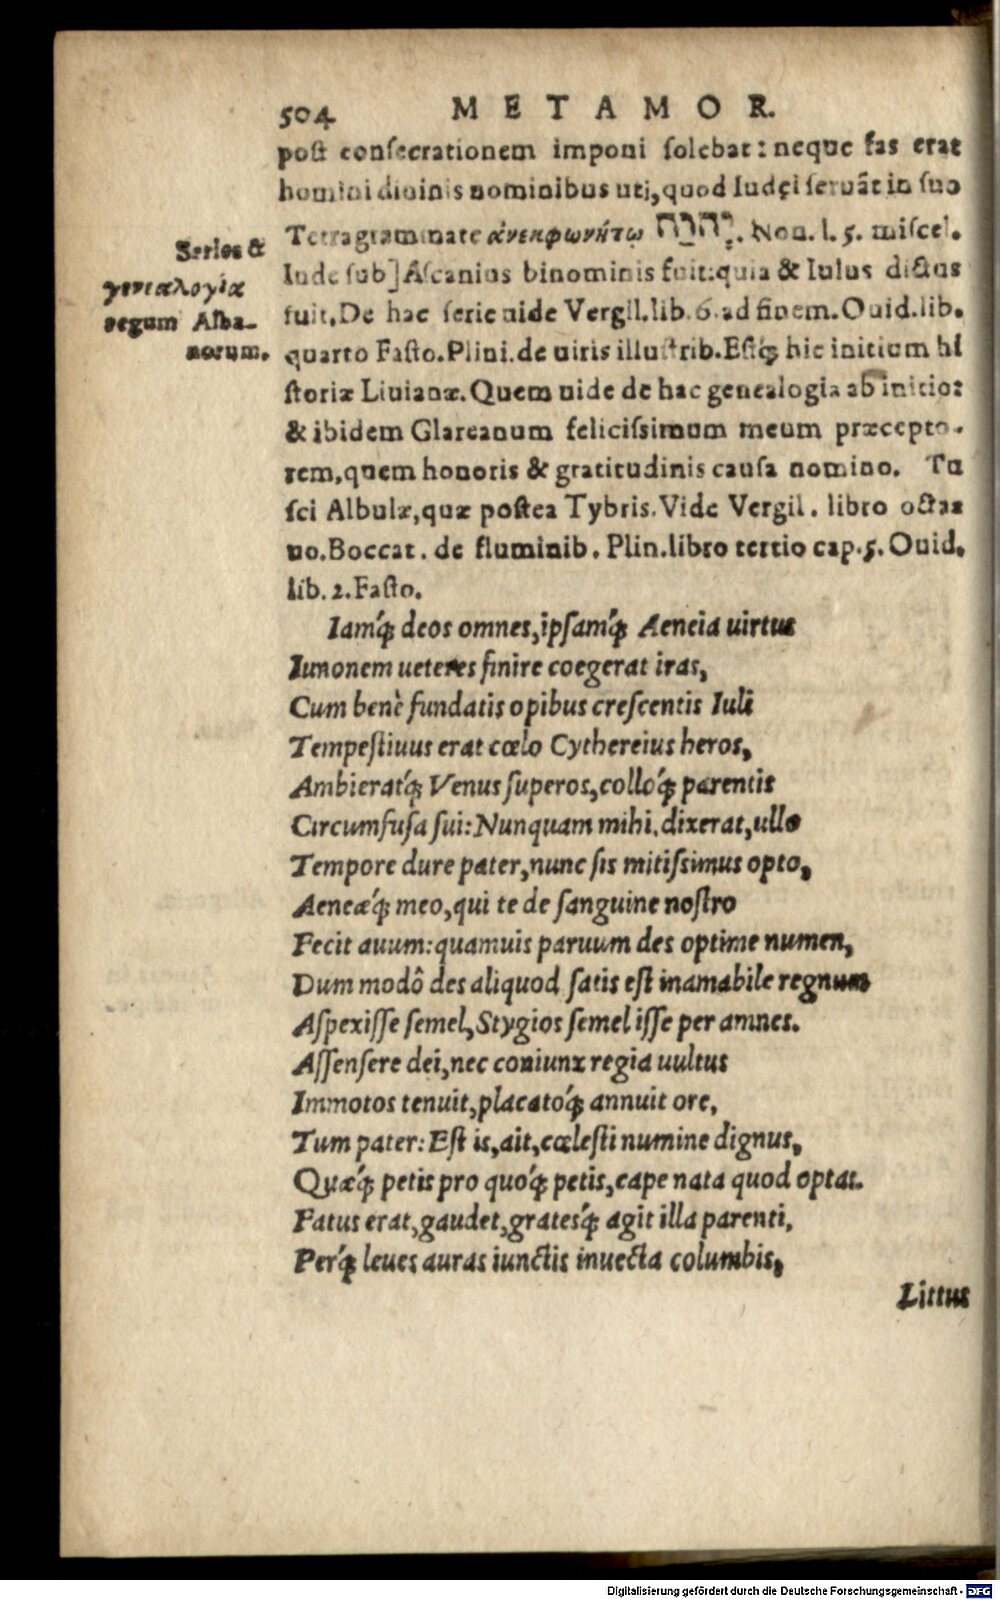 504 METAMOR.
post consecrationem imponi solebat: neque fas erat
homini diuinis nominibus uti, quod Iudęi seruãt in suo
Tetragrammate ἀνεκφωνήτω יְהֹוָה. Non. l. 5. miscel.
Inde sub] Ascanius binominis fuit: quia & Iulus dictus
fuit. De hac serie uide Vergil. lib. 6. ad finem. Ouid. lib.
quarto Fasto. Plini. de uiris illustrib. Estq́; hic initium hi
storiæ Liuianæ. Quem uide de hac genealogia ab initio:
& ibidem Glareanum felicissimum meum præcepto-
rem, quem honoris & gratitudinis causa nomino. Tu
sci Albulæ, quæ postea Tybris. Vide Vergil. libro octa=
uo. Boccat. de fluminib. Plin. libro tertio cap. 5. Ouid.
lib. 2. Fasto.
Series &
γενεαλογία
regum Alba-
norum.
Iamq́; deos omnes, ipsamq́; Aeneia uirtus
Iunonem ueteres finire coegerat iras,
Cum benè fundatis opibus crescentis Iuli
Tempestiuus erat cœlo Cythereius heros,
Ambieratq́; Venus superos, colloq́; parentis
Circumfusa sui: Nunquam mihi, dixerat, ullo
Tempore dure pater, nunc sis mitissimus opto,
Aeneæq́; meo, qui te de sanguine nostro
Fecit auum: quamuis paruum des optime numen,
Dum modô des aliquod satis est inamabile regnum
Aspexisse semel, Stygios semel isse per amnes.
Assensere dei, nec coniunx regia uultus
Immotos tenuit, placatoq́; annuit ore,
Tum pater: Est is, ait, cœlesti numine dignus,
Quæq́; petis pro quoq́; petis, cape nata quod optas.
Fatus erat, gaudet, gratesq́; agit illa parenti,
Perq́; leues auras iunctis inuecta columbis,
Littus
Digitalisierung gefördert durch die Deutsche Forschungsgemeinschaft - DFG